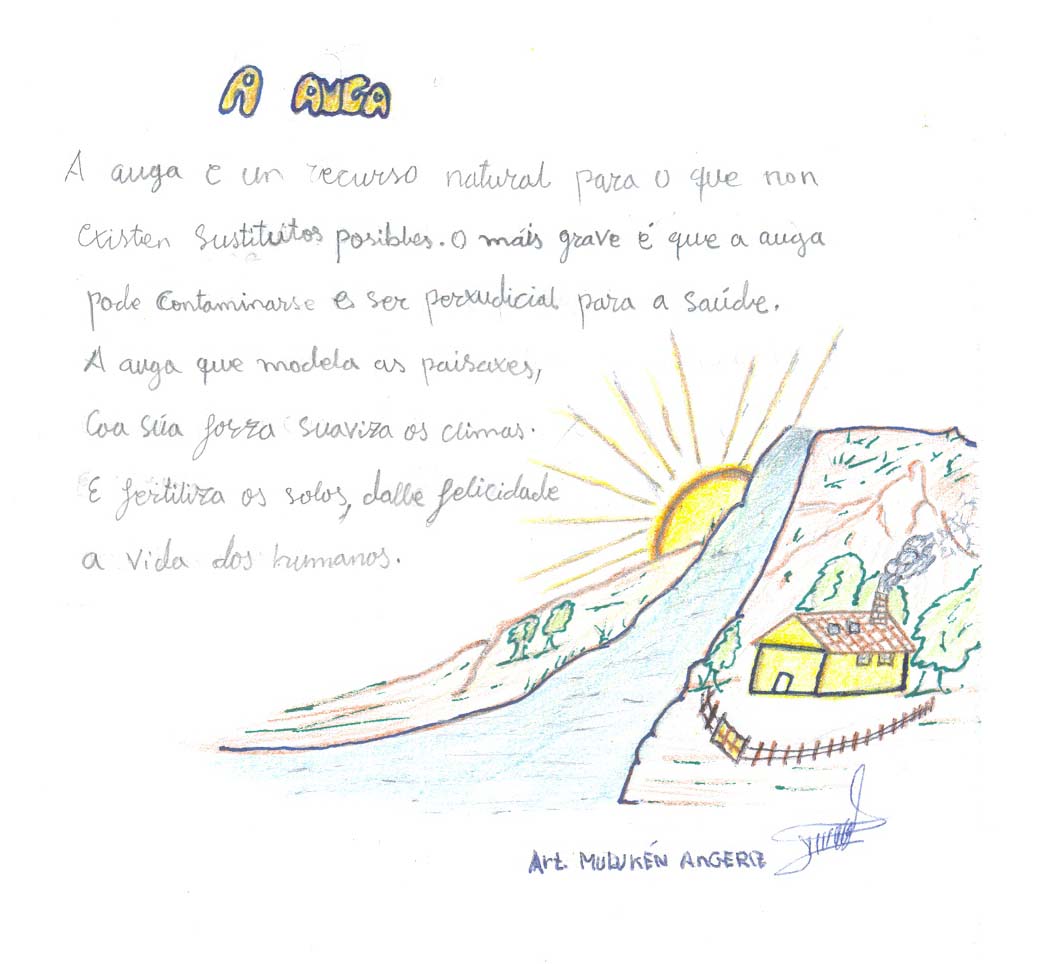 A AUGA
A auga e un recurso natural para o que non
existen sustitutos posibles. O máis grave é que a auga
pode contaminarse e ser perxudicial para a saúde.
A auga que modela as paisaxes,
Coa súa forza suaviza os climas.
E fertiliza os solos, dalle felicidade
a vida dos humanos.
Art. MULUKÉN ANGERIZ